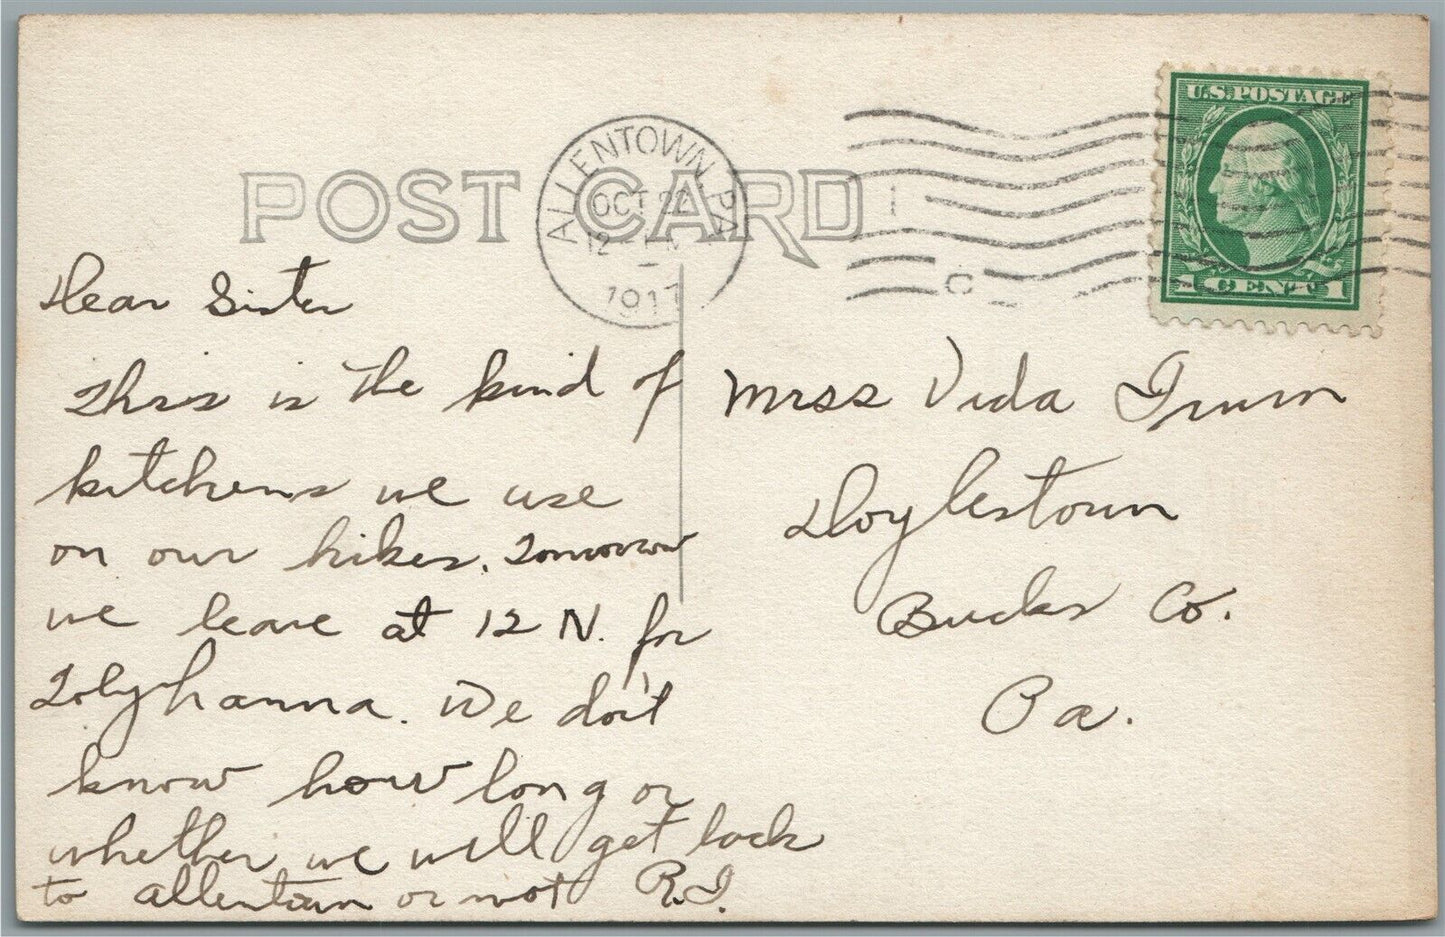 POST CARD
ALLENTOWN, PA
OCT 22
12
1917
U.S. POSTAGE
1 CENT 1
Dear Sister
This is the kind of
kitchens we use
on our hikes. Tomorrow
we leave at 12 N. for
Tobyhanna. We don't
know how long or
whether we will get back
to Allentown or not R.I.
Miss Vida Irwin
Doylestown
Bucks Co.
Pa.